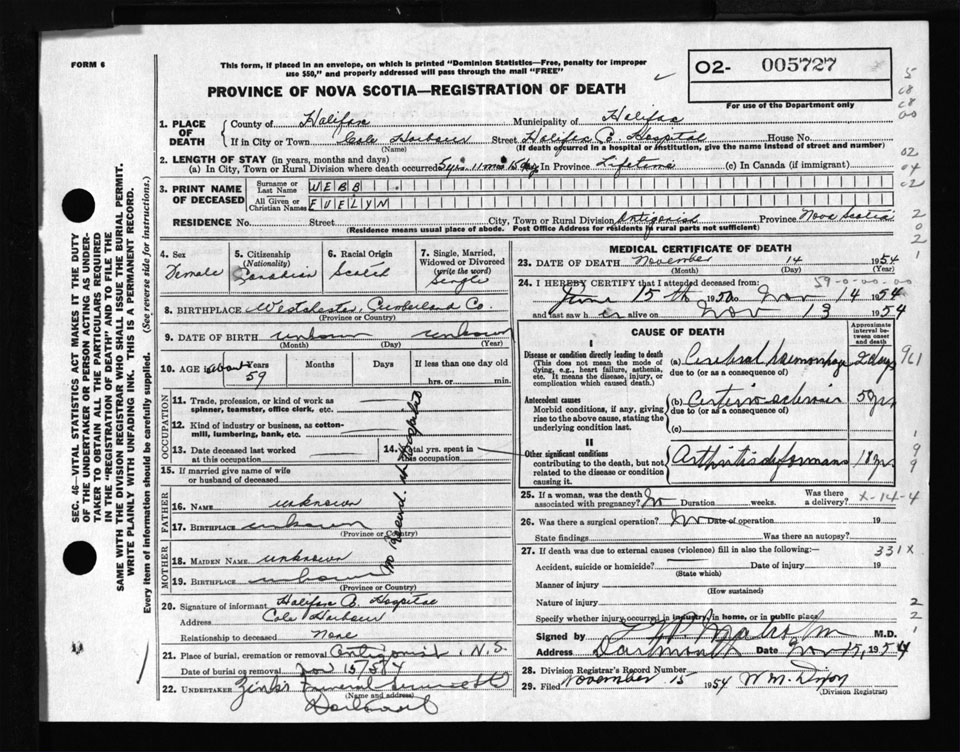 FORM 6
This form, if placed in an envelope, on which is printed "Dominion Statistics—Free, penalty for improper
use $50," and properly addressed will pass through the mail "FREE"
PROVINCE OF NOVA SCOTIA—REGISTRATION OF DEATH
O2- 005727
For use of the Department only
1. PLACE OF DEATH County of Halifax Municipality of Halifax
If in City or Town Cole Harbour Street Halifax C. Hospital House No.
(Name) (If death occurred in a hospital or institution, give the name instead of street and number)
2. LENGTH OF STAY (in years, months and days)
(a) In City, Town or Rural Division where death occurred 5 yrs 11 mos 15 dys In Province Lifetime (c) In Canada (if immigrant)
3. PRINT NAME OF DECEASED Surname or Last Name WEBB
All Given or Christian Names EVELYN
RESIDENCE No. Street City, Town or Rural Division Antigonish Province Nova Scotia
(Residence means usual place of abode. Post Office Address for residents in rural parts not sufficient)
4. Sex Female
5. Citizenship (Nationality) Canadian
6. Racial Origin Scotch
7. Single, Married, Widowed or Divorced (write the word) Single
8. BIRTHPLACE Westchester, Cumberland Co.
(Province or Country)
9. DATE OF BIRTH unknown unknown
(Month) (Day) (Year)
10. AGE in about Years 59 Months Days If less than one day hrs. or min.
OCCUPATION
11. Trade, profession, or kind of work as spinner, teamster, office clerk, etc.
12. Kind of industry or business, as cotton-mill, lumbering, bank, etc.
13. Date deceased last worked at this occupation
14. Total yrs. spent in this occupation
No Record at Hospital
15. If married give name of wife or husband of deceased
FATHER
16. Name unknown
17. Birthplace unknown
(Province or Country)
MOTHER
18. Maiden Name unknown
19. Birthplace unknown
(Province or Country)
20. Signature of informant Halifax C. Hospital
Address Cole Harbour
Relationship to deceased None
21. Place of burial, cremation or removal Antigonish, N.S.
Date of burial or removal Nov 15/54
22. UNDERTAKER Zink's Funeral
(Name and address)
Dartmouth
MEDICAL CERTIFICATE OF DEATH
23. DATE OF DEATH November 14 1954
(Month) (Day) (Year)
24. I HEREBY CERTIFY that I attended deceased from: 59-0-00-00
June 15th 1950 to Nov 14 1954
and last saw her alive on Nov 13 1954
CAUSE OF DEATH
Approximate interval between onset and death
I
Disease or condition directly leading to death
(This does not mean the mode of dying, e.g., heart failure, asthenia, etc. It means the disease, injury, or complication which caused death.
(a) Cerebral haemorrhage 2 days
due to (or as a consequence of)
Antecedent causes
Morbid conditions, if any, giving rise to the above cause, stating the underlying condition last.
(b) 5 yrs
due to (or as a consequence of)
(c)
II
Other significant conditions
contributing to the death, but not related to the disease or condition causing it.
Arthritis deformans 18 yrs
25. If a woman, was the death associated with pregnancy? No Duration weeks. Was there a delivery? X-14-4
26. Was there a surgical operation? No Date of operation 19
State findings Was there an autopsy?
27. If death was due to external causes (violence) fill in also the following:— 331X
Accident, suicide or homicide? Date of injury 19
(State which)
Manner of injury
(How sustained)
Nature of injury
Specify whether injury occurred in industry, in home, or in public place
Signed by M.D.
Address Dartmouth Date Nov 15, 1954
28. Division Registrar's Record Number
29. Filed November 15 1954 W.M.
(Division Registrar)
SEC. 46—VITAL STATISTICS ACT MAKES IT THE DUTY
OF THE UNDERTAKER OR PERSON ACTING AS UNDER-
TAKER TO OBTAIN ALL THE PARTICULARS REQUIRED
IN THE "REGISTRATION OF DEATH" AND TO FILE THE
SAME WITH THE DIVISION REGISTRAR WHO SHALL ISSUE THE BURIAL PERMIT.
WRITE PLAINLY WITH UNFADING INK. THIS IS A PERMANENT RECORD.
Every item of information should be carefully supplied. (See reverse side for instructions.)